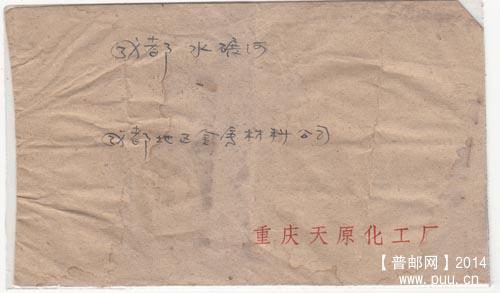 成都 水碾河
成都地区金属材料公司
重庆天原化工厂
【普邮网】2014
www.puu.cn